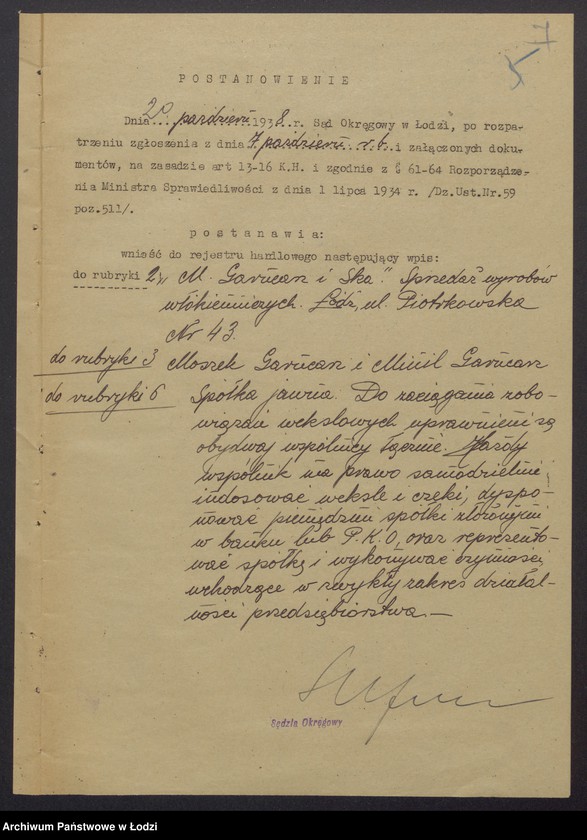 7
5
POSTANOWIENIE
Dnia 20 paździer. 1938 r. Sąd Okręgowy w Łodzi, po rozpa-
trzeniu zgłoszenia z dnia 7 paździer. r.b. i załączonych doku-
mentów, na zasadzie art 13-16 K.H. i zgodnie z § 61-64 Rozporządze-
nia Ministra Sprawiedliwości z dnia 1 lipca 1934 r. /Dz.Ust.Nr.59
poz.511/.
postanawia:
wnieść do rejestru handlowego następujący wpis:
do rubryki 2 "M. Garncarz i Ska." Sprzedaż wyrobów
włókienniczych. Łódź, ul. Piotrkowska
Nr 43.
do rubryki 3 Moszek Garncarz i Garncarz
do rubryki 6 Spółka jawna. Do zaciągania zobo-
wiązań wekslowych uprawnieni są
obydwaj wspólnicy łącznie. Każdy
wspólnik ma prawo samodzielnie
indosować weksle i czeki, dyspo-
nować pieniędzmi spółki złożonymi
w banku lub P.K.O, oraz reprezento-
wać spółkę i wykonywać czynności
wchodzące w zwykły zakres działal-
ności przedsiębiorstwa.—
Sędzia Okręgowy
Archiwum Państwowe w Łodzi